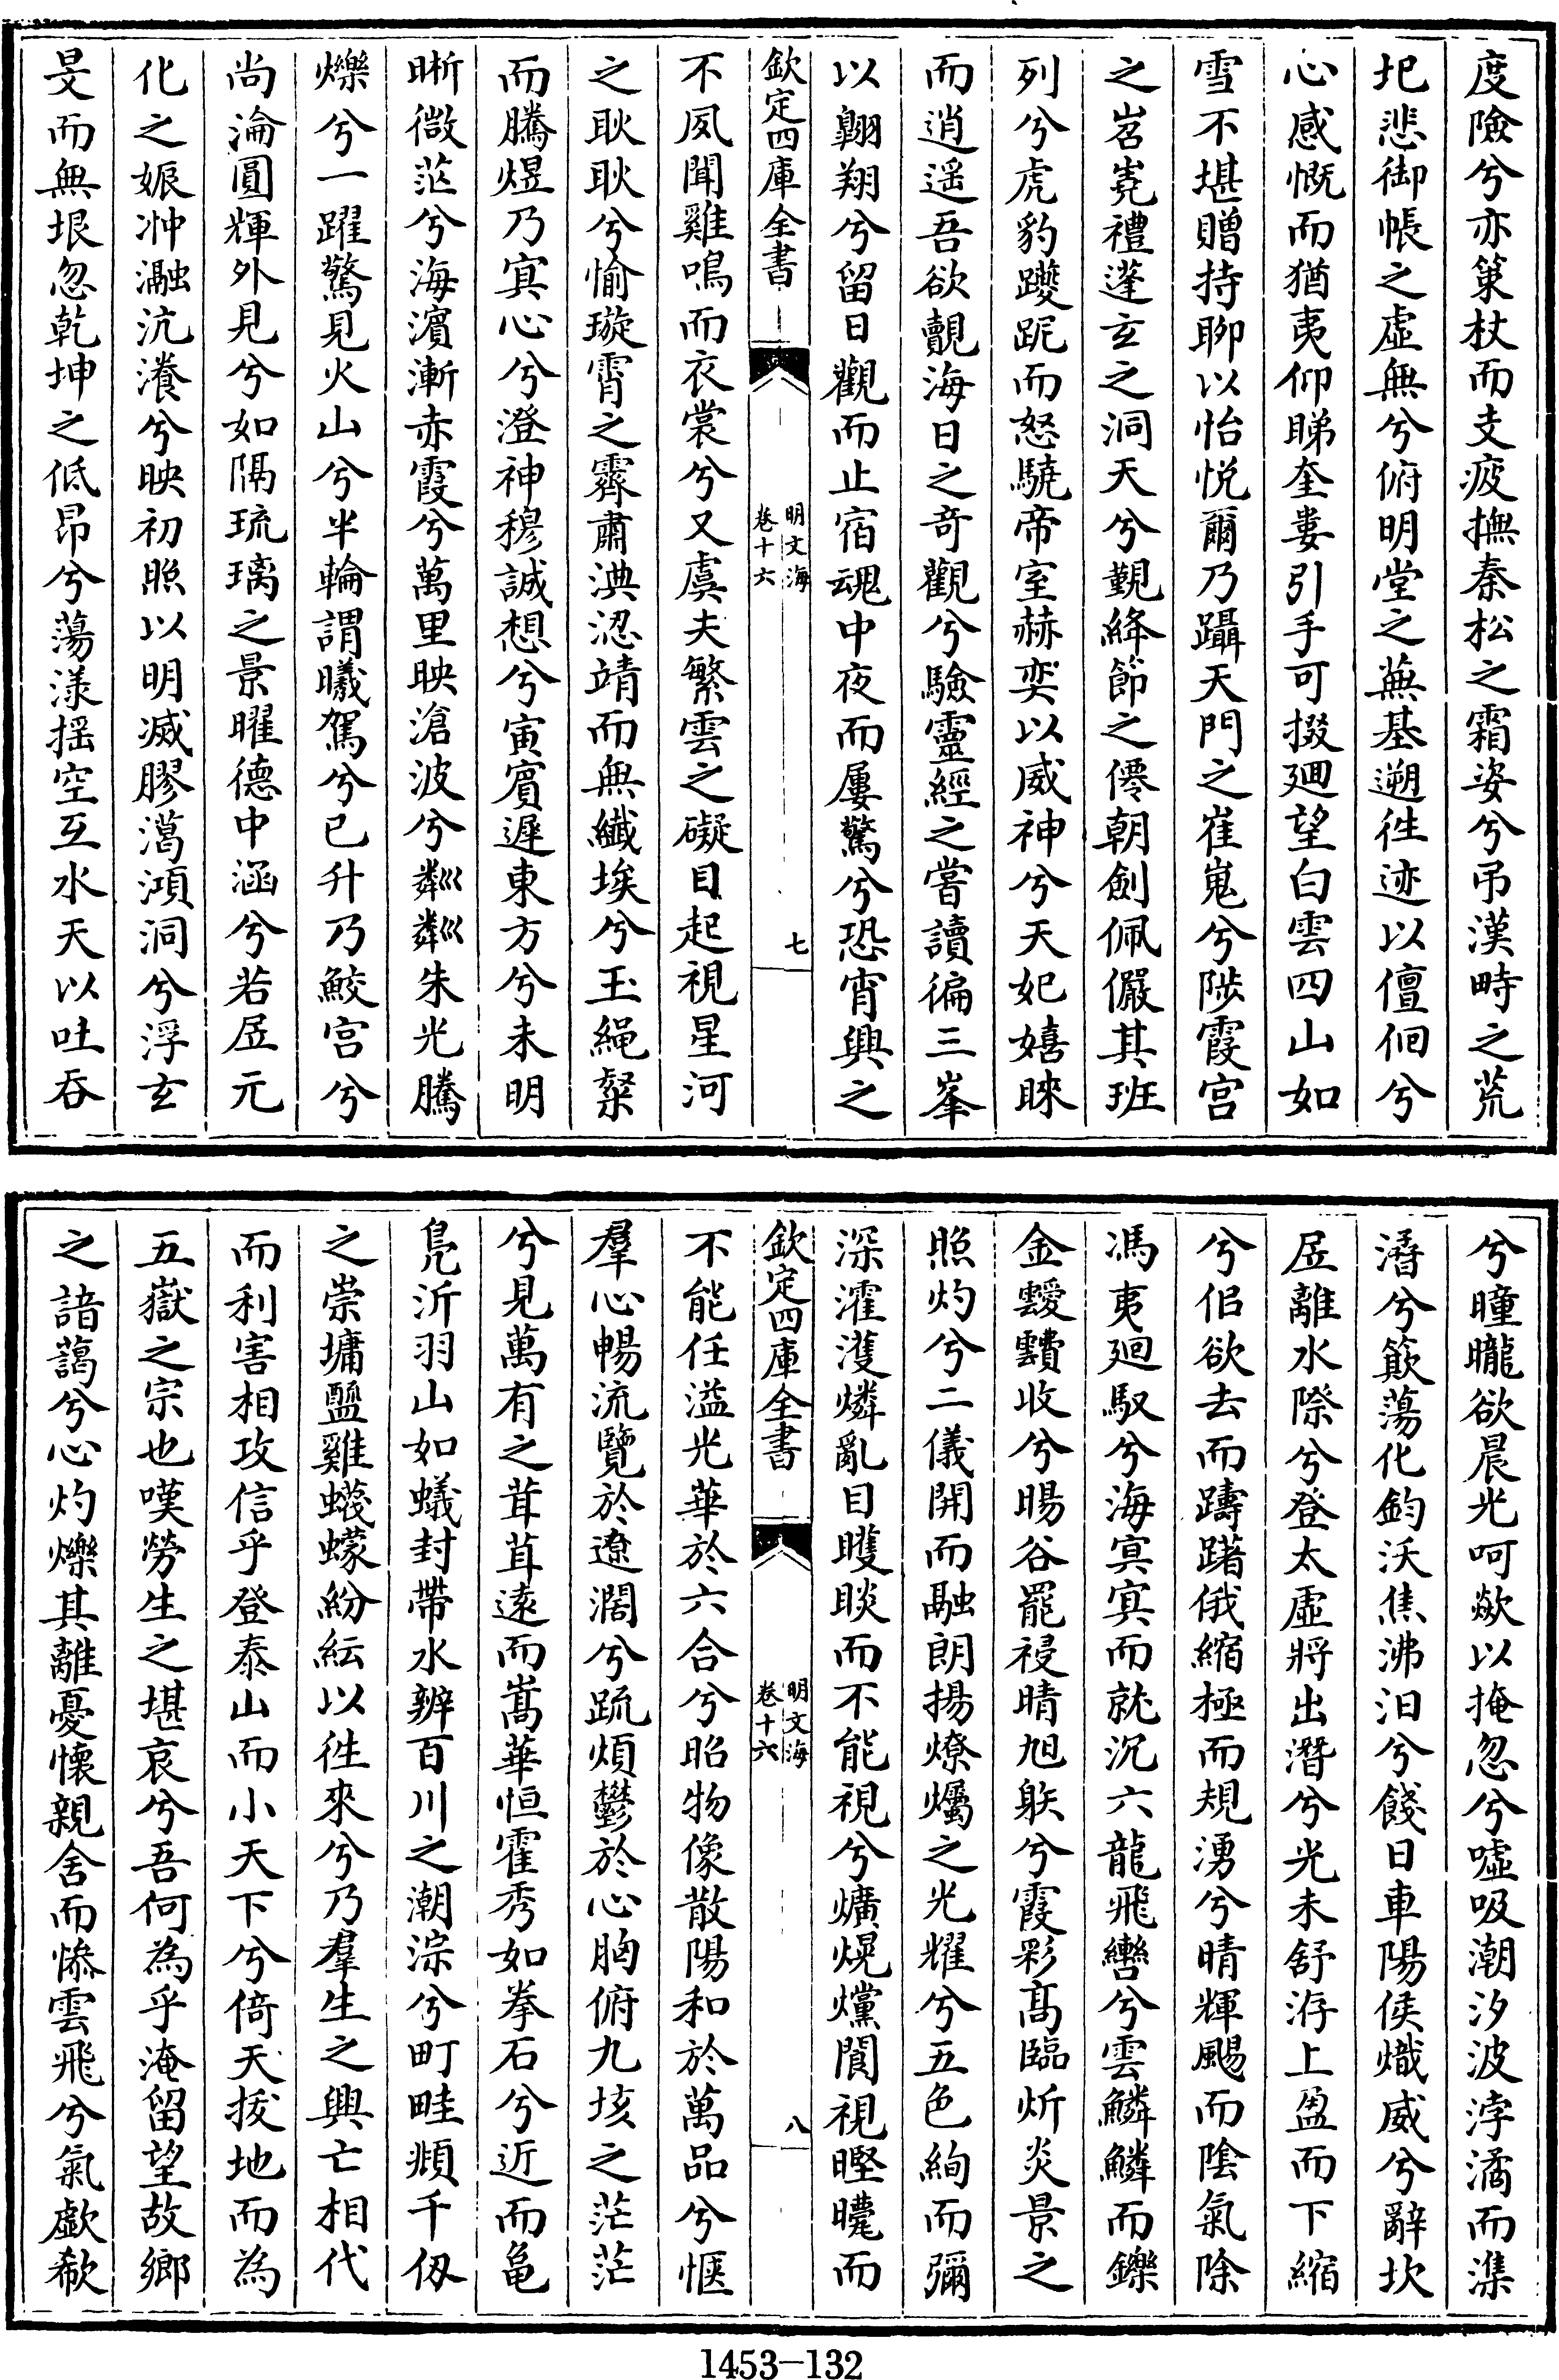 度險兮亦䇿杖而支疲撫秦松之霜姿兮弔漢畤之荒
圯悲御帳之虛無兮俯明堂之蕪基遡徃迹以儃佪兮
心感慨而猶夷仰睇奎婁引手可掇廻望白雲四山如
雪不堪贈持聊以怡悦爾乃躡天門之崔嵬兮陟霞宫
之岧嶤禮蓬玄之洞天兮覲絳節之僊朝劍佩儼其班
列兮虎豹躨跜而怒驍帝室赫奕以威神兮天妃嬉睞
而逍遥吾欲覿海日之奇觀兮驗靈經之嘗讀徧三峯
以翺翔兮留日觀而止宿魂中夜而屢驚兮恐宵興之
欽定四庫全書
明文海
卷十六
七
不夙聞雞鳴而衣裳兮又虞夫繁雲之礙目起視星河
之耿耿兮愉璇霄之霽肅淟涊靖而無纖埃兮玉繩粲
而騰煜乃寘心兮澄神穆誠想兮寅賓遲東方兮未明
晰微茫兮海濱漸赤霞兮萬里映滄波兮粼粼朱光騰
爍兮一躍驚見火山兮半輪謂曦駕兮已升乃鮫宫兮
尚淪圓輝外見兮如隔琉璃之景曜德中涵兮若居元
化之娠冲瀜沆瀁兮映初照以明滅膠㵧澒洞兮浮玄
旻而無垠忽乾坤之低昂兮蕩漾揺空互水天以吐吞
兮曈曨欲晨光呵歘以掩忽兮噓吸潮汐波浡潏而潗
濳兮簸蕩化鈞沃焦沸汩兮餞日車陽侯熾威兮辭坎
居離水際兮登太虛將出潛兮光未舒洊上盈而下縮
兮佀欲去而躊躇俄縮極而規湧兮晴輝颺而陰氣除
馮夷廻馭兮海寘寘而就沉六龍飛轡兮雲鱗鱗而鑠
金靉靆收兮暘谷罷祲晴旭躩兮霞彩髙臨炘炎景之
照灼兮二儀開而融朗揚燎爥之光耀兮五色絢而彌
深濯濩燐亂目矆睒而不能視兮爌熀爣閬視瞘矘而
欽定四庫全書
明文海
卷十六
八
不能任溢光華於六合兮昭物像散陽和於萬品兮愜
羣心暢流覽於遼濶兮疏煩鬱於心胸俯九垓之茫茫
兮見萬有之茸茸逺而嵩華恒霍秀如拳石兮近而龜
鳬沂羽山如蟻封帶水辨百川之潮淙兮町畦頫千伋
之崇墉盬雞蠛蠓紛紜以徃來兮乃羣生之興亡相代
而利害相攻信乎登泰山而小天下兮倚天拔地而為
五嶽之宗也嘆勞生之堪哀兮吾何為乎淹留望故鄉
之䜾藹兮心灼爍其離憂懷親舍而慘雲飛兮氣歔欷
1453—132